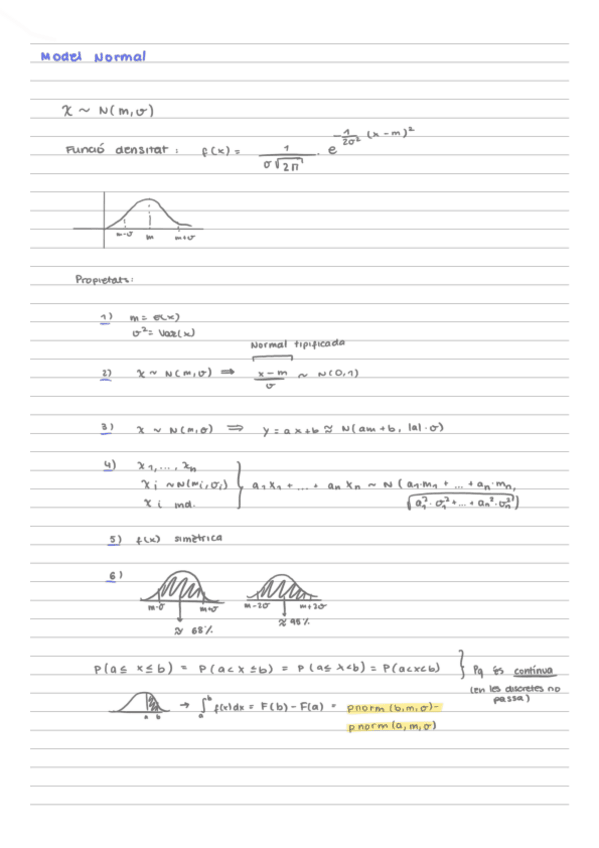 Model Normal
X ~ N(m,σ)
Funció densitat: f(x) = 1/(σ√2π) · e^(-1/2σ² (x-m)²)
m-σ m m+σ
Propietats:
1) m = E(x)
σ² = Var(x)
Normal tipificada
2) X ~ N(m,σ) ⟹ (x-m)/σ ~ N(0,1)
3) X ~ N(m,σ) ⟹ y = ax+b ≈ N(am+b, |a|·σ)
4) X1, ..., Xn
Xi ~ N(mi,σi) } a1X1 + ... + anXn ~ N(a1·m1 + ... + an·mn,
Xi ind. √(a1²·σ1² + ... + an²·σn²))
5) f(x) simètrica
6)
m-σ m+σ m-2σ m+2σ
≈ 68% ≈ 95%
P(a≤ X ≤b) = P(a<X≤b) = P(a≤X<b) = P(a<X<b) } Pq és contínua
(en les discretes no
passa)
a b → ∫ₐᵇ f(x)dx = F(b) - F(a) = pnorm(b,m,σ)-
pnorm(a,m,σ)